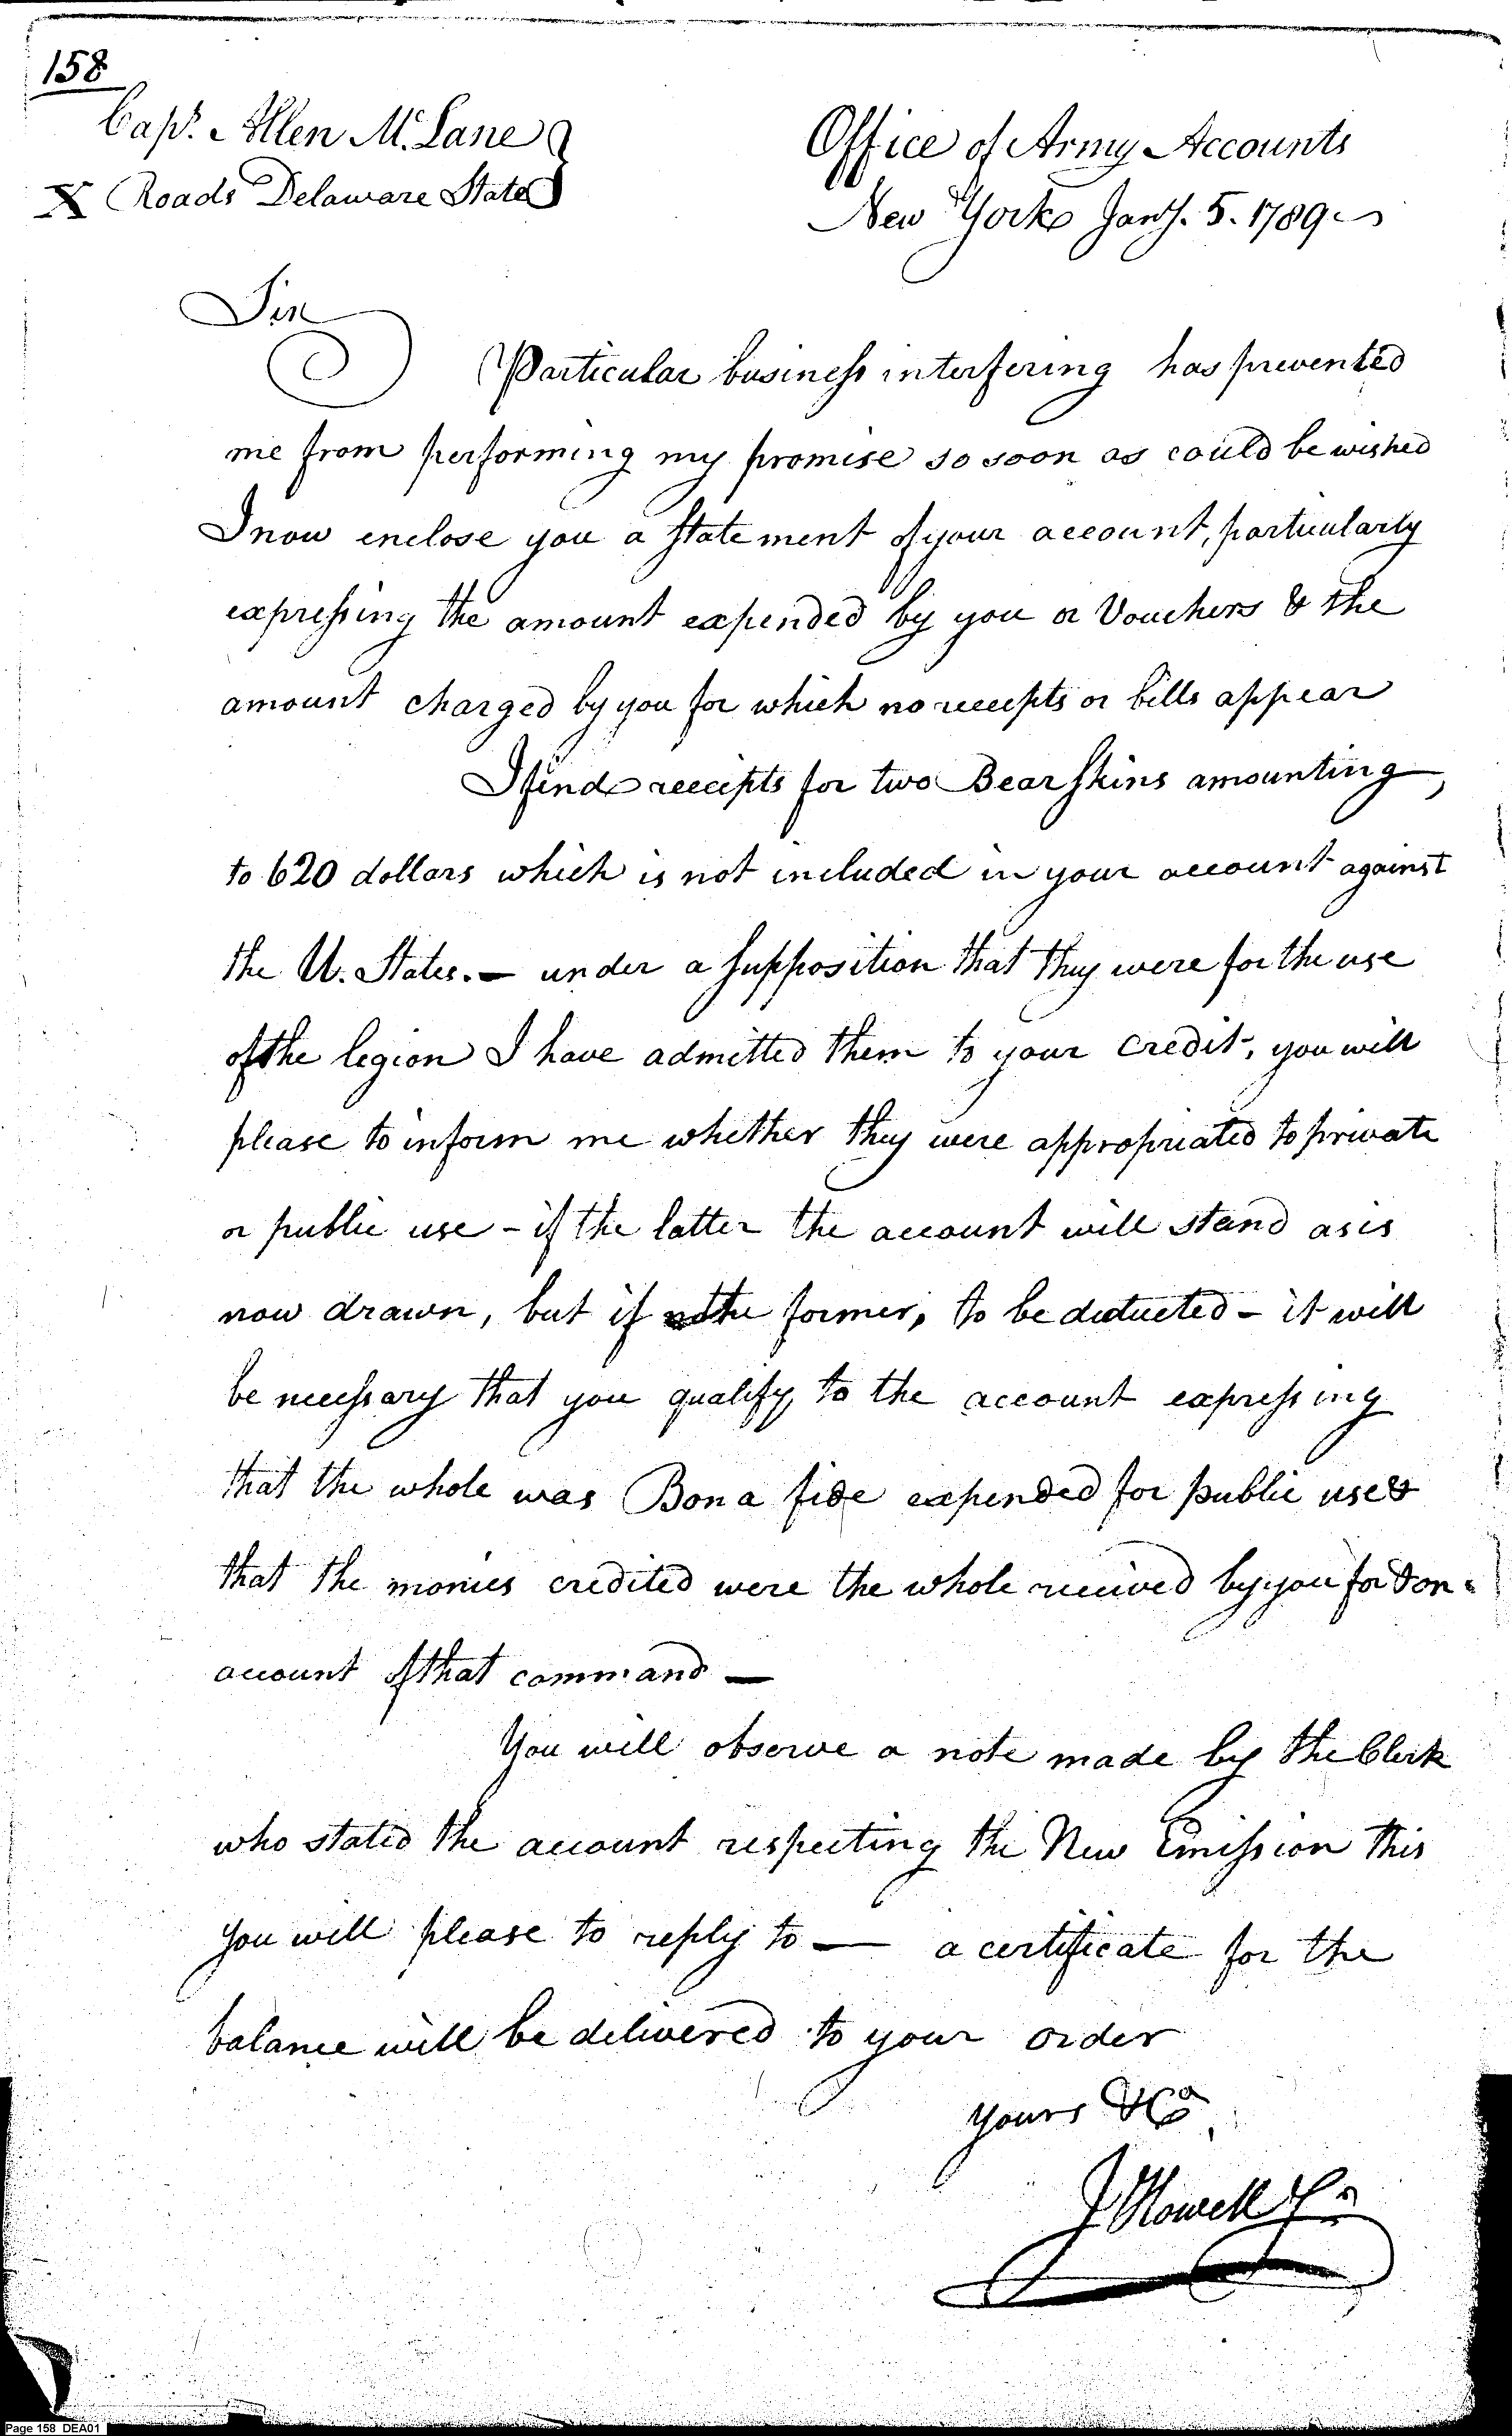 158
Capt. Allen McLane
X Roads Delaware State
Office of Army Accounts
New York Jany. 5. 1789
Sir
Particular business interfering has prevented
me from performing my promise so soon as could be wished
I now enclose you a statement of your account, particularly
expressing the amount expended by you or Vouchers & the
amount charged by you for which no receipts or bills appear
I find receipts for two Bear skins amounting
to 620 dollars which is not included in your account against
the U. States. — under a supposition that they were for the use
of the legion I have admitted them to your credit, you will
please to inform me whether they were appropriated to private
or public use - if the latter the account will stand as is
now drawn, but if the former, to be deducted - it will
be necessary that you qualify to the account expressing
that the whole was Bona fide expended for public use &
that the monies credited were the whole received by you for & on
account of that command —
You will observe a note made by the Clerk
who stated the account respecting the New Emission this
you will please to reply to — a certificate for the
balance will be delivered to your order
yours &Ca
J Howell Jr
Page 158 DEA01